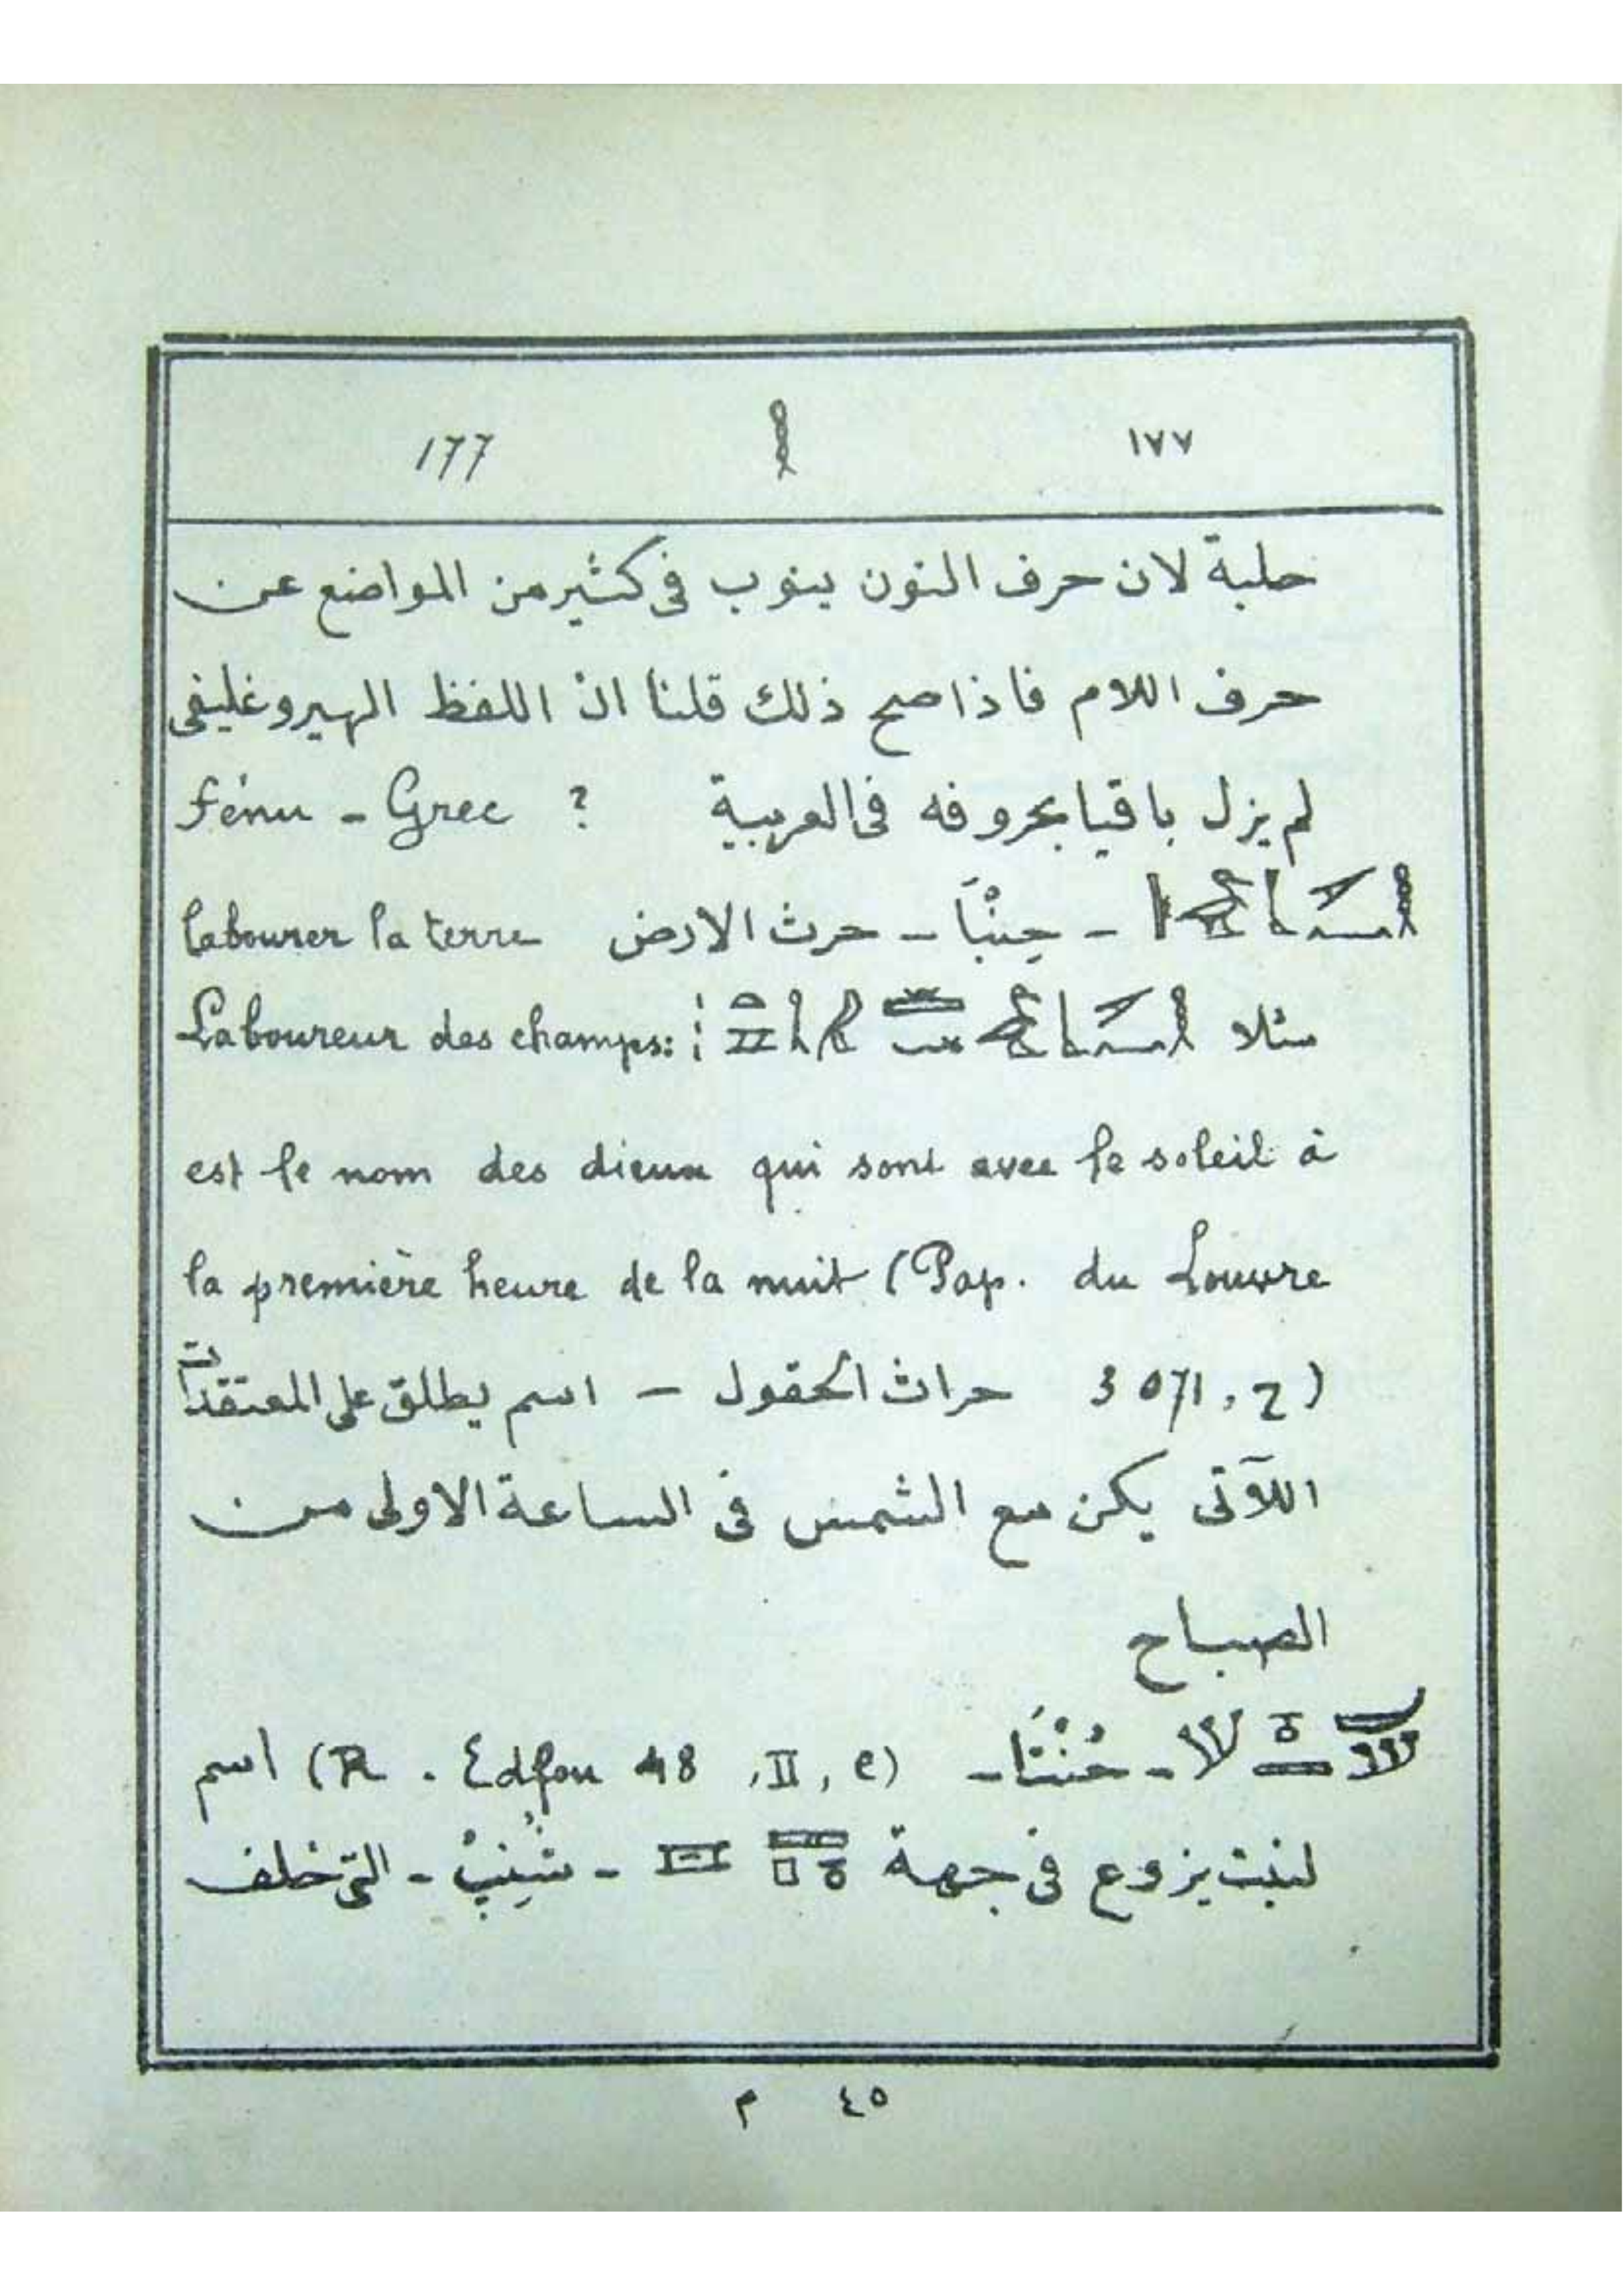 ١٧٧ 177
حلبة لان حرف النون ينوب فى كثير من المواضع عن
حرف اللام فاذا صح ذلك قلنا ان اللفظ الهيروغليفى
لم يزل باقيا بحروفه فى العربية ? Fénu - Grec
- حِنْبَا - حرث الارض labourer la terre
مثلا Laboureur des champs:
est le nom des dieux qui sont avec le soleil à
la première heure de la nuit (Pap. du Louvre
3071, 7) حراث الحقول - اسم يطلق على المعتقدات
اللآتى يكن مع الشمس فى الساعة الاولى من
الصباح
- حُنْتَا - (R. Edfou 48, II, e) اسم
لنبت يزوع فى جهة - شِنِبْ - التى خلف
٤٥ م